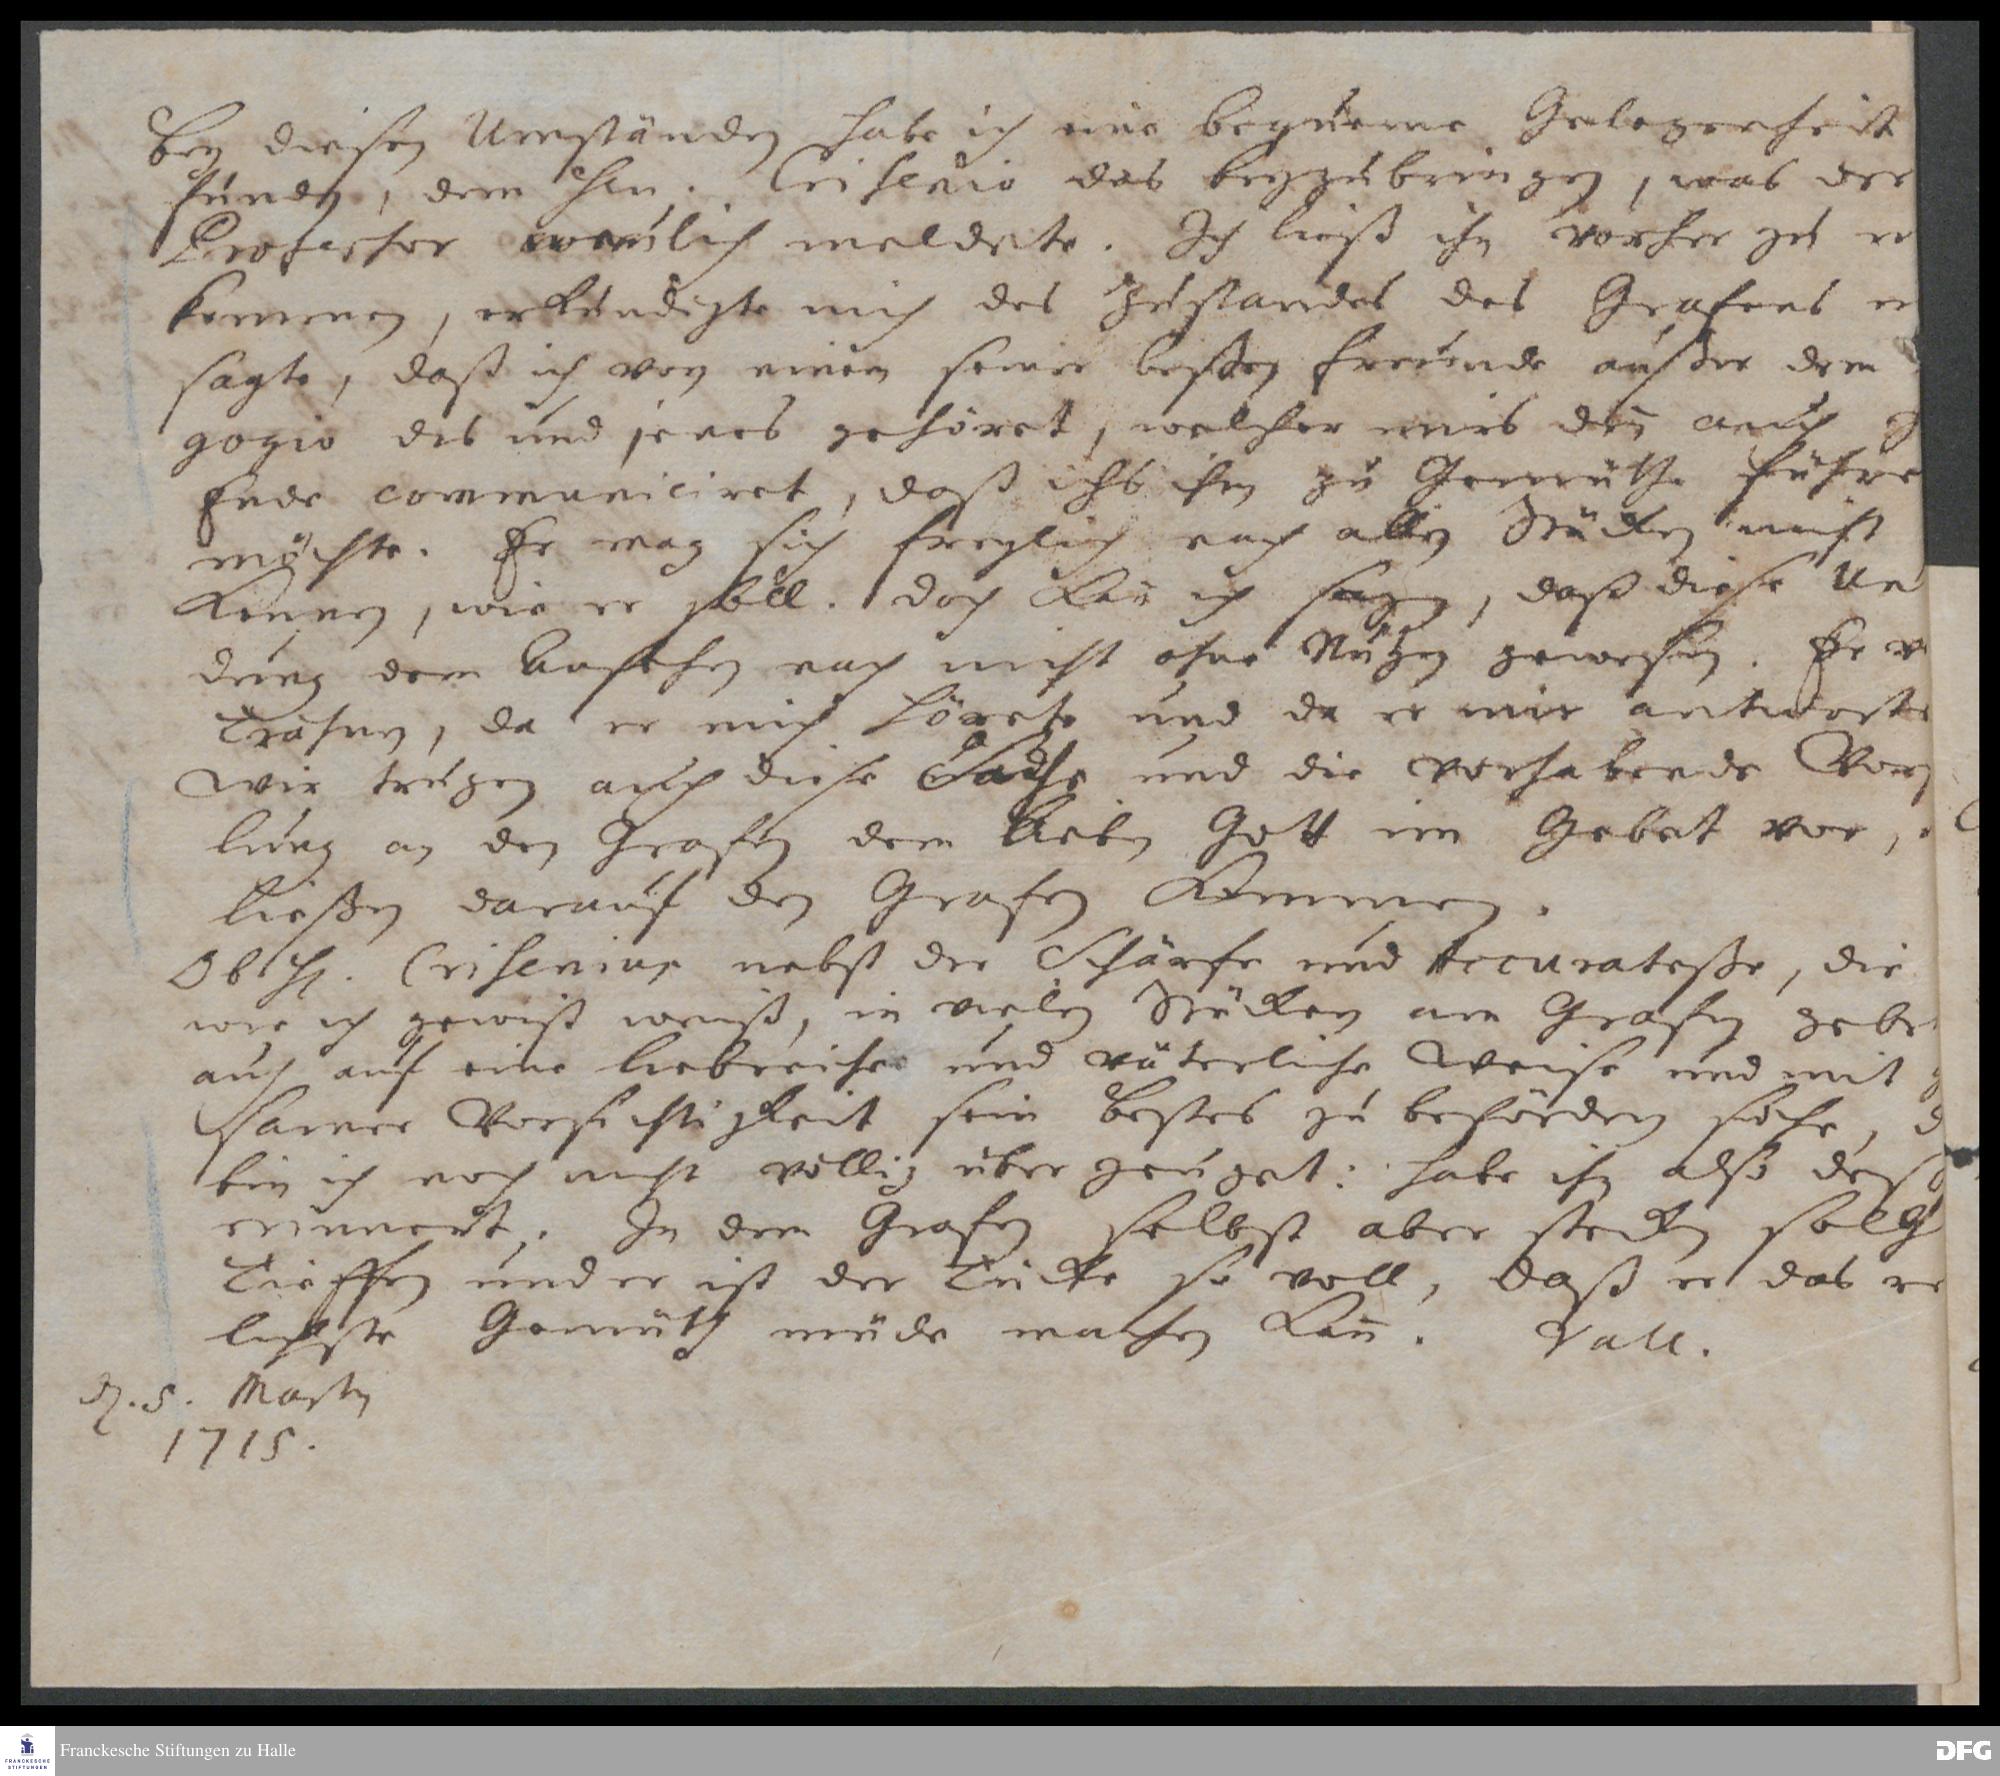 Bey diesen Umständen habe ich eine bequeme Gelegenheit
funden, dem Hrn. Crisenio das beyzubringen, was der
Professor neulich meldete. Ich ließ ihn vorher zu
kommen, erkundigte mich des Zustandes des Grafens
sagte, daß ich von einem seiner besten Freunde außer dem
gogio des und jenes gehöret, welcher mirs den̄ auch
Ende communiciret, daß ichs ihm zu Gemüthe führe
möchte. Er mag sich freylich nach allen Stücken nicht
kennen, wie er soll. Doch kan̄ ich sagen, daß diese Un
dung dem Ansehen nach nicht ohne Nutzen gewesen. Er
Trähnen, da er mich hörete und da er mir antwortete
Wir trugen auch diese Sache und die vorhabende Vors
lung an den Grafen dem lieben Gott im Gebet vor,
ließen darauf den Grafen kommen.
Ob H. Crisenius nebst der Schärfe und Accuratesse, die
wie ich gewiß weiß, in vielen Stücken am Grafen gebr
auch auf eine liebreiche und väterliche Weise und mit
samer Vorsichtigkeit sein Bestes zu befördern suche,
bin ich noch nicht völlig überzeuget: habe ihn also deß
erinnert. In dem Grafen selbst aber stecken solch
Tieffen und er ist der Tücke so voll, daß er das
lichste Gemüth müde machen kan̄. Vale.
d. 5. Martii
1715.
Franckesche Stiftungen zu Halle
FRANCKESCHE
STIFTUNGEN
DFG